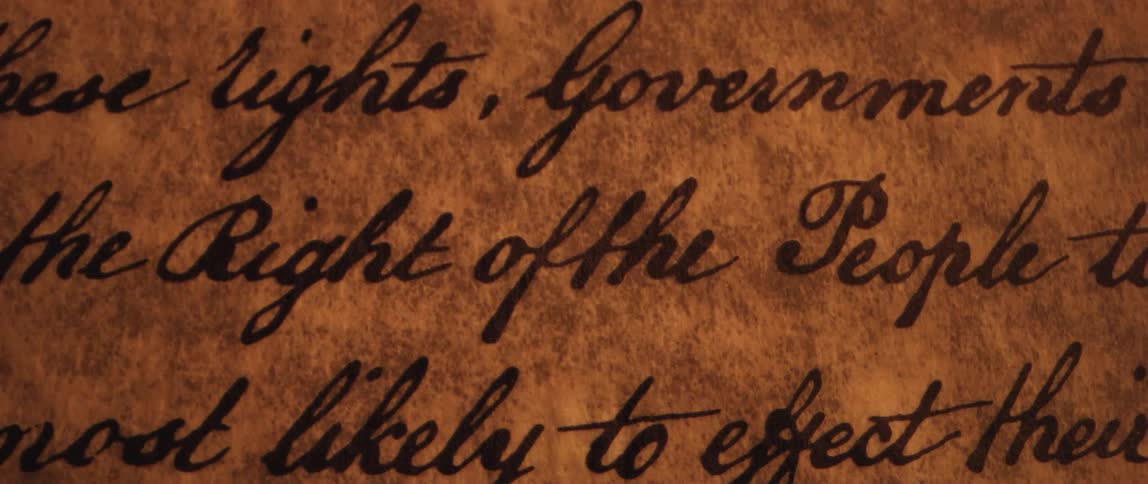 hese rights, Governments
the Right of the People to
most likely to effect their